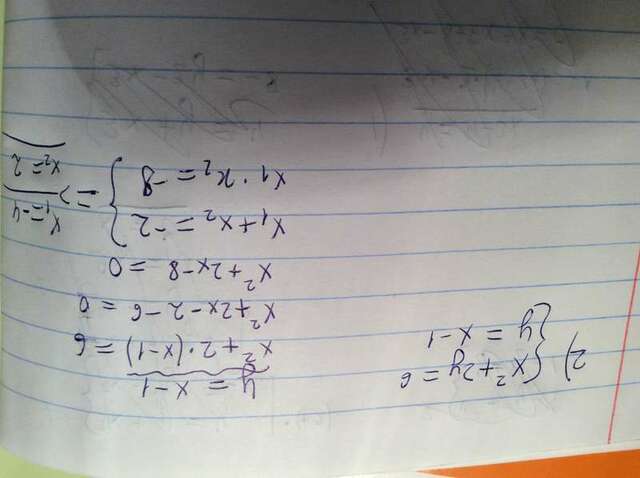 2) { x² + 2y = 6
y = x - 1
y = x - 1
x² + 2 · (x - 1) = 6
x² + 2x - 2 - 6 = 0
x² + 2x - 8 = 0
x₁ + x₂ = -2
x₁ · x₂ = -8 } => x₁ = -4
x₂ = 2